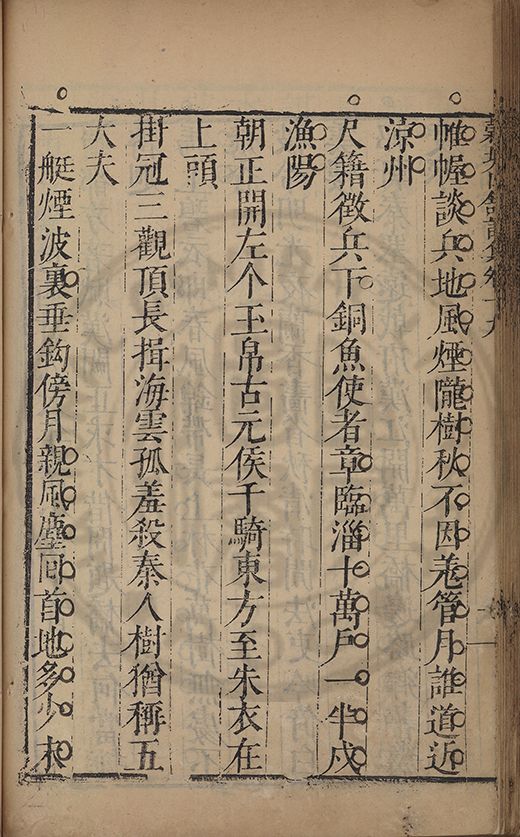 帷幄談兵地風煙隴樹秋不因羌管月誰道近
涼州
尺籍徵兵下銅魚使者章臨淄十萬戶一半戍
漁陽
朝正開左个玉帛古元侯千騎東方至朱衣在
上頭
掛冠三觀頂長揖海雲孤羞殺秦人樹猶稱五
大夫
一艇煙波裏垂鈎傍月親風塵回首地多少未